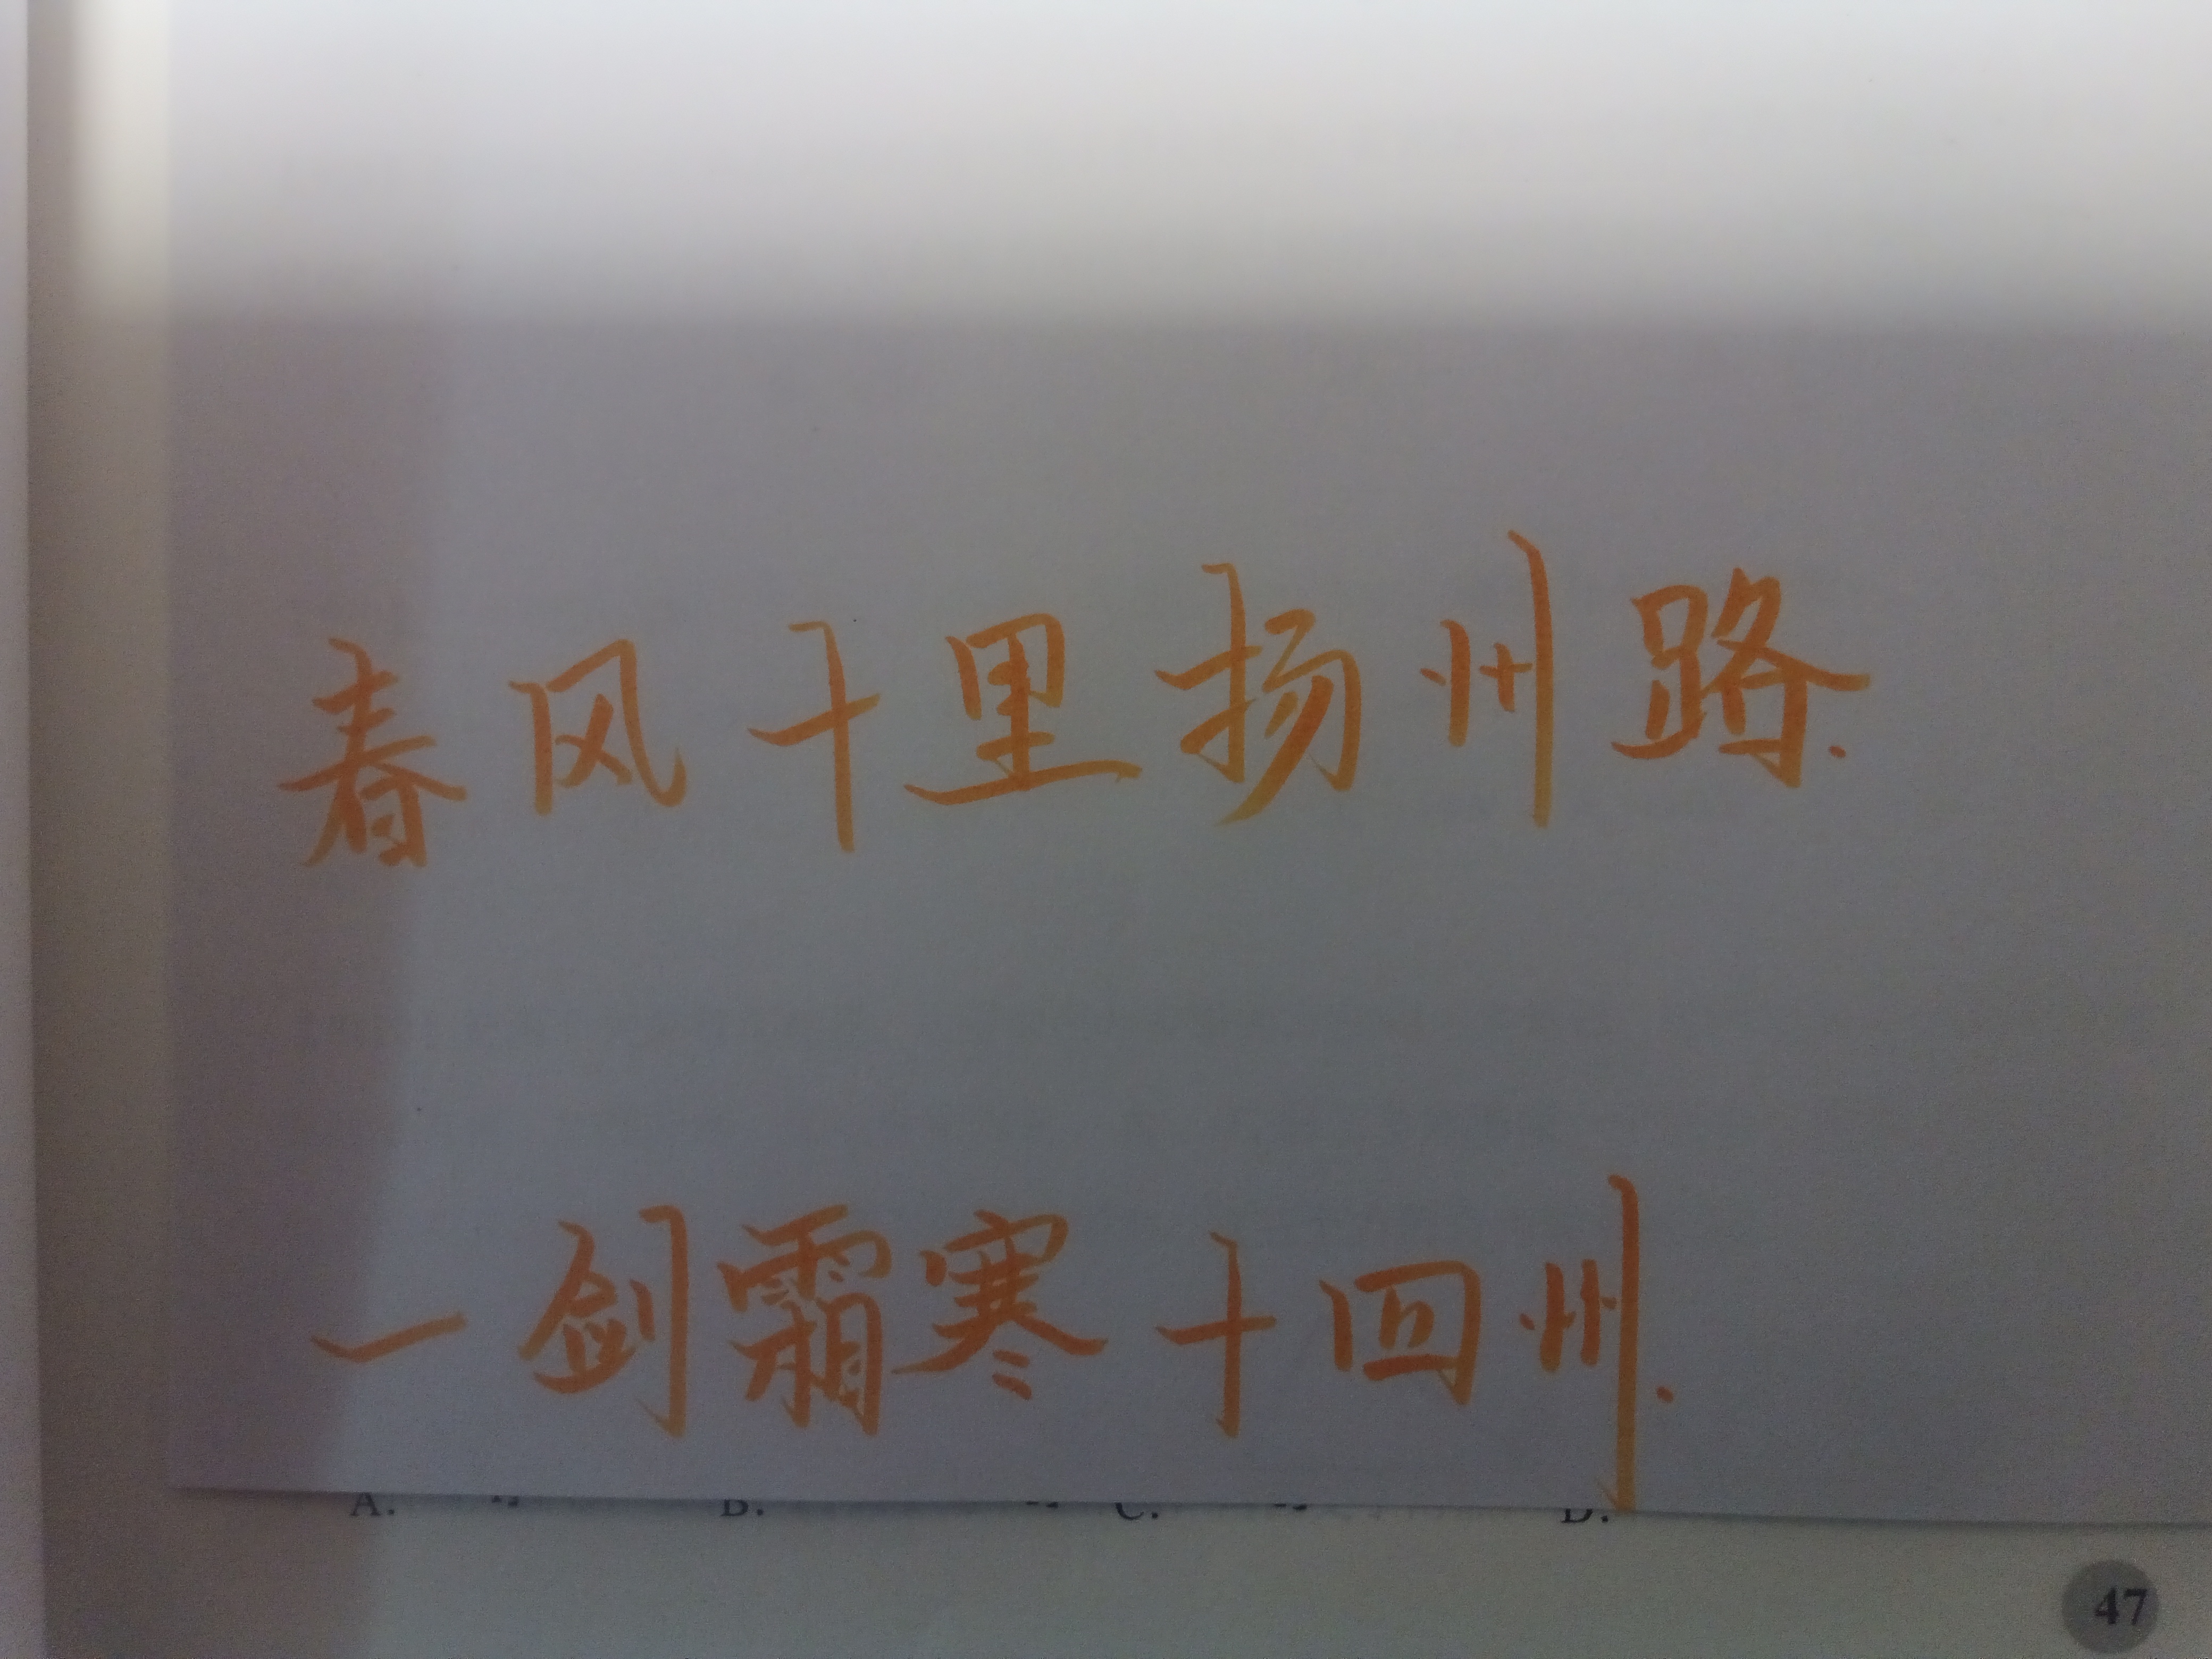 春风十里扬州路.
一剑霜寒十四州.
A. B. C. D.
47